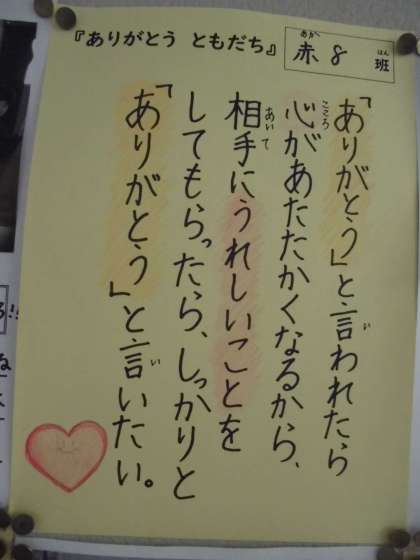 『ありがとう ともだち』
赤8班
「ありがとう」と言われたら
心があたたかくなるから、
相手にうれしいことを
してもらったら、しっかりと
「ありがとう」と言いたい。